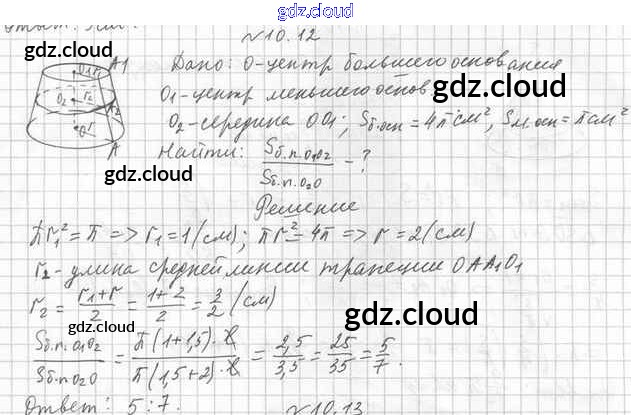 gdz.cloud
Ответ:
№10.12
gdz.cloud
gdz.cloud
O1 r1 A1
Дано: O-центр большего основания
O1-центр меньшего основ
gdz.cloud
O2 r2 A2
O2-середина OO1; Sб.осн = 4π см², Sм.осн = π см²
O r A
Найти: Sб.п.O1O2 / Sб.п.O2O - ?
gdz.cloud
Решение
πr1² = π => r1 = 1 (см); πr² = 4π => r = 2 (см)
r2 - длина средней линии трапеции OAA1O1
r2 = (r1+r)/2 = (1+2)/2 = 3/2 (см)
gdz.cloud
Sб.п.O1O2 / Sб.п.O2O = π(1+1,5)·l / π(1,5+2)·l = 2,5/3,5 = 25/35 = 5/7.
gdz.cloud
Ответ: 5:7.
№10.13